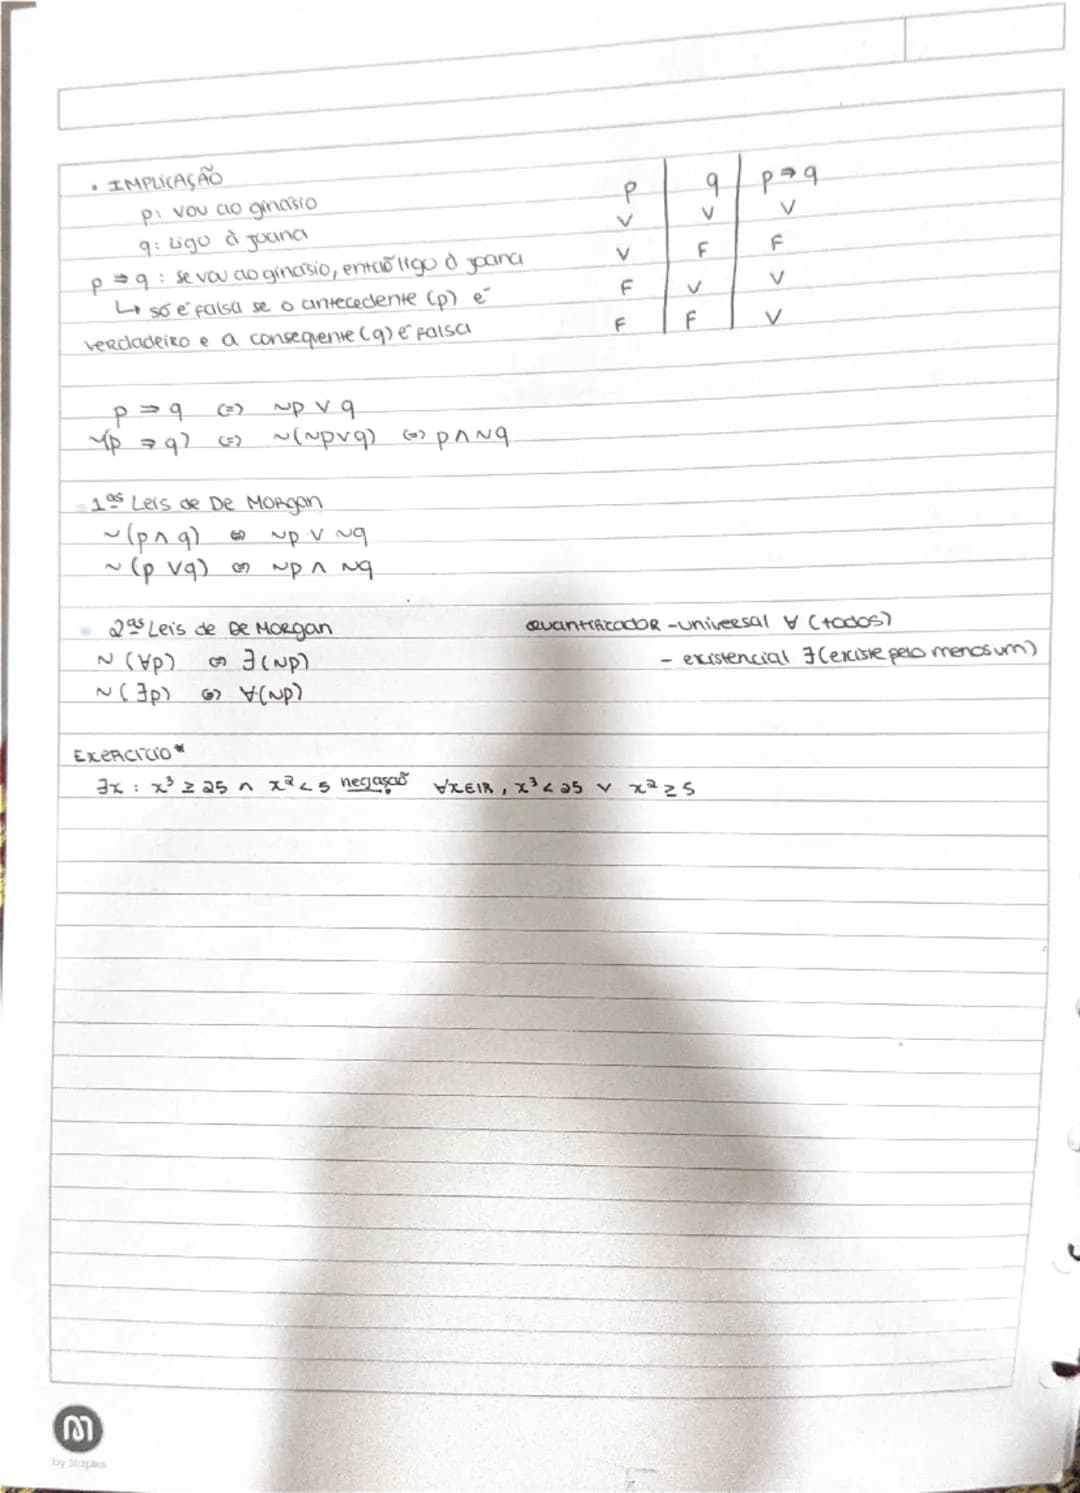 • IMPLICAÇÃO
p: vou ao ginásio
q: Ligo à Joana
p ⇒ q : se vou ao ginásio, então ligo à Joana
↳ só é falsa se o antecedente (p) é
verdadeiro e a conseqente (q) é falsa
p | q | p ⇒ q
V | V | V
V | F | F
F | V | V
F | F | V
p ⇒ q ⇔ ~p ∨ q
~(p ⇒ q) ⇔ ~(~p∨q) ⇔ p∧~q
1as Leis de De Morgan
~(p∧q) ⇔ ~p ∨ ~q
~(p ∨q) ⇔ ~p ∧ ~q
2as Leis de De Morgan
~(∀p) ⇔ ∃(~p)
~(∃p) ⇔ ∀(~p)
Quantificador - universal ∀ (todos)
- existencial ∃ (existe pelo menos um)
Exercício*
∃x : x³ ≥ 25 ∧ x² < 5 negação ∀x∈IR, x³ < 25 ∨ x² ≥ 5
by Staples